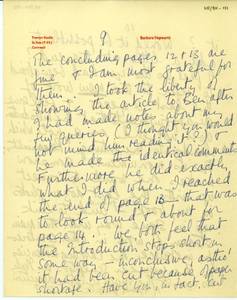 Trewyn Studio
St. Ives
Cornwall
Barbara Hepworth
9
The concluding pages 12 & 13 are
fine & I am most grateful for
them. I took the liberty of
showing the article to Ben after
I had made notes about my
few queries, (I thought you would
not mind him reading it?) &
he made the identical comments
Furthermore he did exactly
what I did when I reached
the end of page 13 – that was
to look round & about for
page 14. We both feel that
the Introduction stops short in
some way – inconclusive, as tho'
it had been cut because of paper
shortage. Have you, in fact, cut